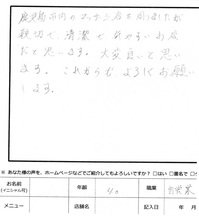 鹿児島市内のマッサージ店を周りましたが
親切で、清潔で、気やすいお店
だと思います。大変良いと思い
ます。これからもよろしくお願い
します。
※ あなた様の声を、ホームページなどでご紹介してもよろしいですか？ □はい □匿名で
お名前 (イニシャル可) 年齢 40 職業 自営業
メニュー 店舗名 記入日 年 月